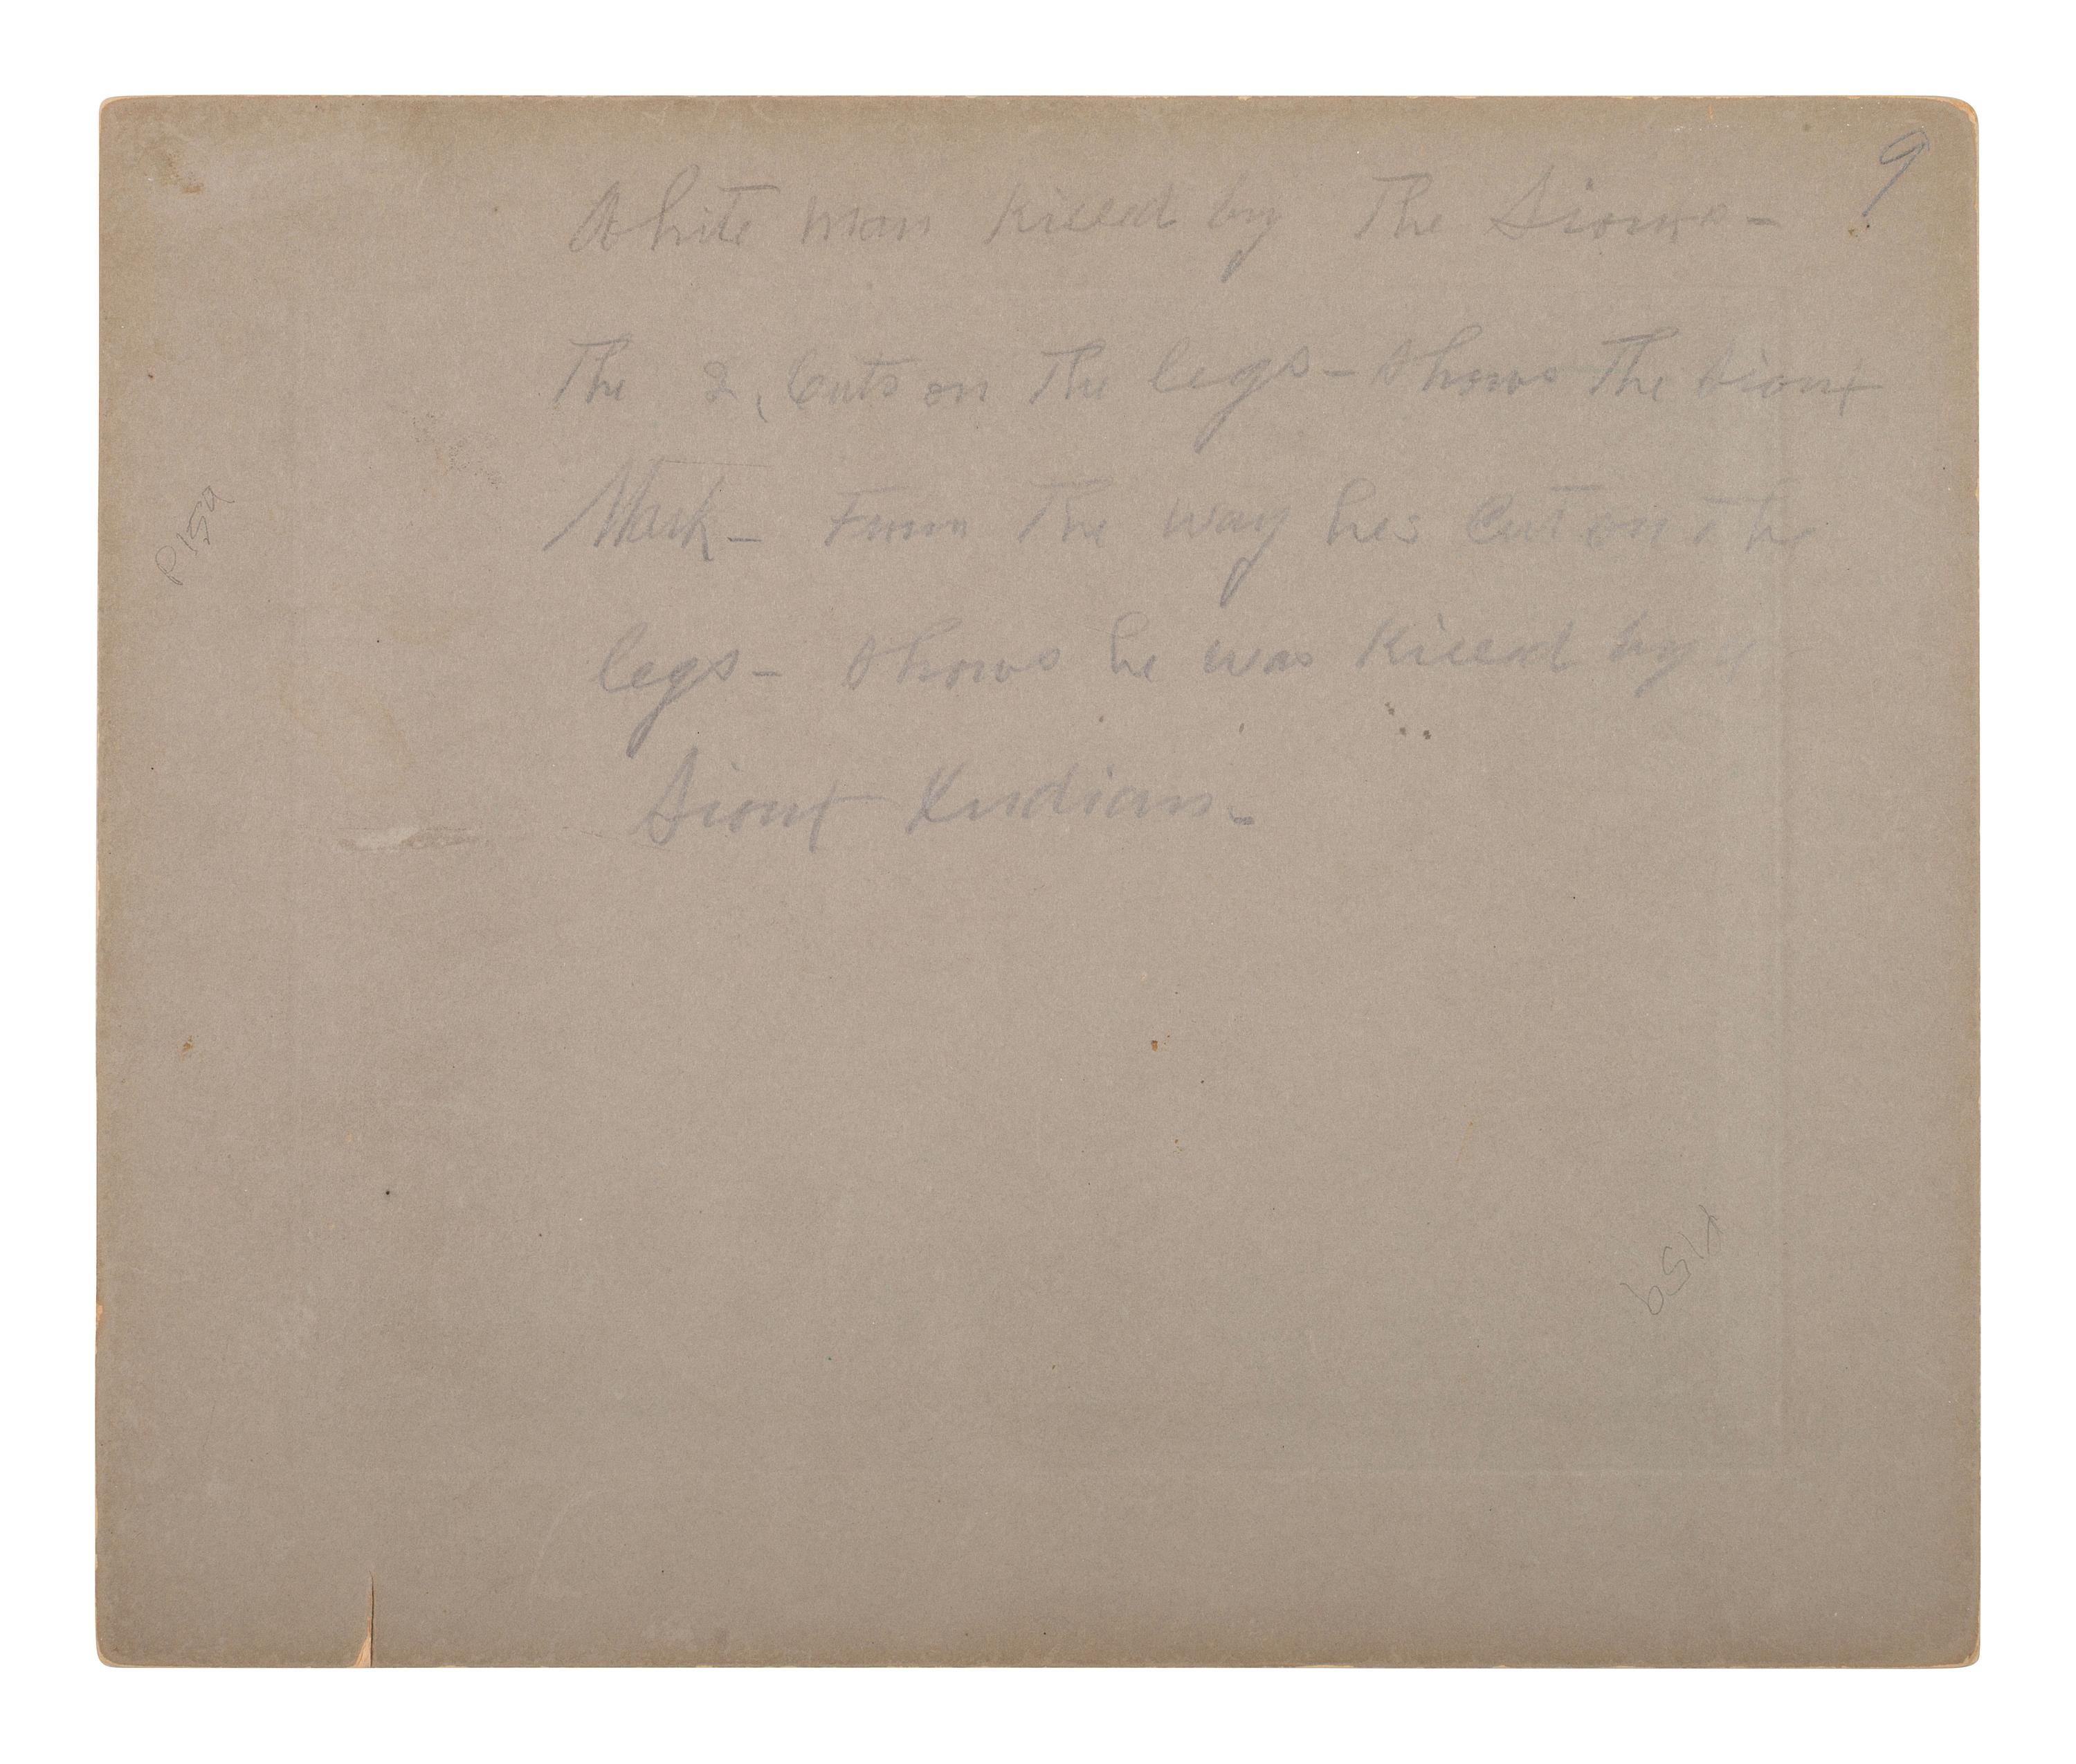 9
White man killed by The Sioux's -
The 2, Cuts on The legs - shows The Sioux
Mark - From The way hes Cut on the
legs - shows he was killed by
Sioux Indians -
P159